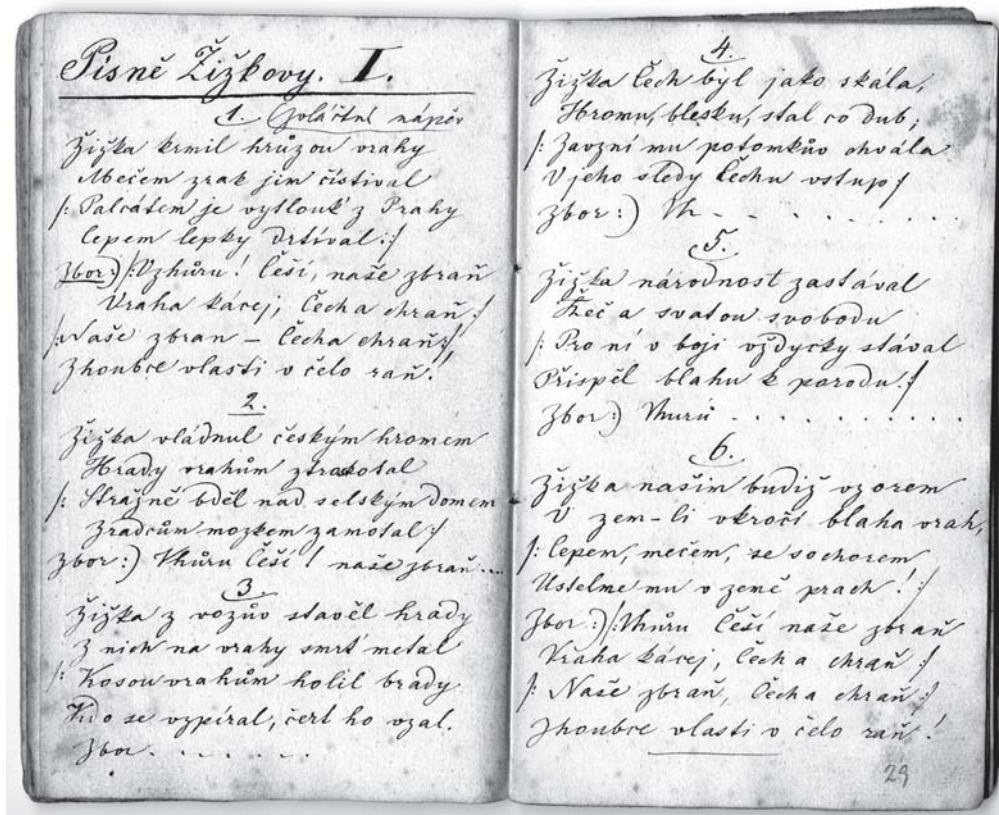 Písně Žižkovy. I.
1. Zvláštní nápěv
Žižka krmil hrůzou vrahy
Mečem zrak jim čistíval
/: Palcátem je vytlouk' z Prahy
Cepem lepky drtíval :/
Zbor:) /: Vzhůru! Češi, naše zbraň
Vraha kácej, Čecha chraň :/
/: Naše zbran – Čecha chraň :/
Zhoubce vlasti v čelo raň!
2.
Žižka vládnul českým hromem
Hrady vrahům ztroskotal
/: Strážně bděl nad selským domem
Zrádcům mozkem zamotal :/
Zbor:) Vhůru Češi! naše zbraň....
3
Žižka z vozův stavěl hrady
Z nich na vrahy smrť metal
/: Kosou vrahům holil brady
Kdo se vzpíral, čert ho vzal.
Zbor. . . . . . .
4.
Žižka Čech byl jako skála,
Hromu, blesku, stal co dub;
/: Zavzní mu potomkův chvála
V jeho sledy Čechu vstup :/
Zbor:) Vh - - . . . . . . .
5.
Žižka národnost zastával
Řeč a svatou svobodu
/: Pro ní v boji vždycky stával
Přispěl blahu k porodu. :/
Zbor:) Vhuru . . . . . . . . . .
6.
Žižka našim budiž vzorem
V zem-li vkročí blaha vrah,
/: Cepem, mečem, se sochorem
Ustelme mu v země prach! :/
Zbor:) /: Vhůru Češi naše zbraň
Vraha kácej, Čecha chraň :/
/: Naše zbraň, Čecha chraň :/
Zhoubce vlasti v čelo raň!
29